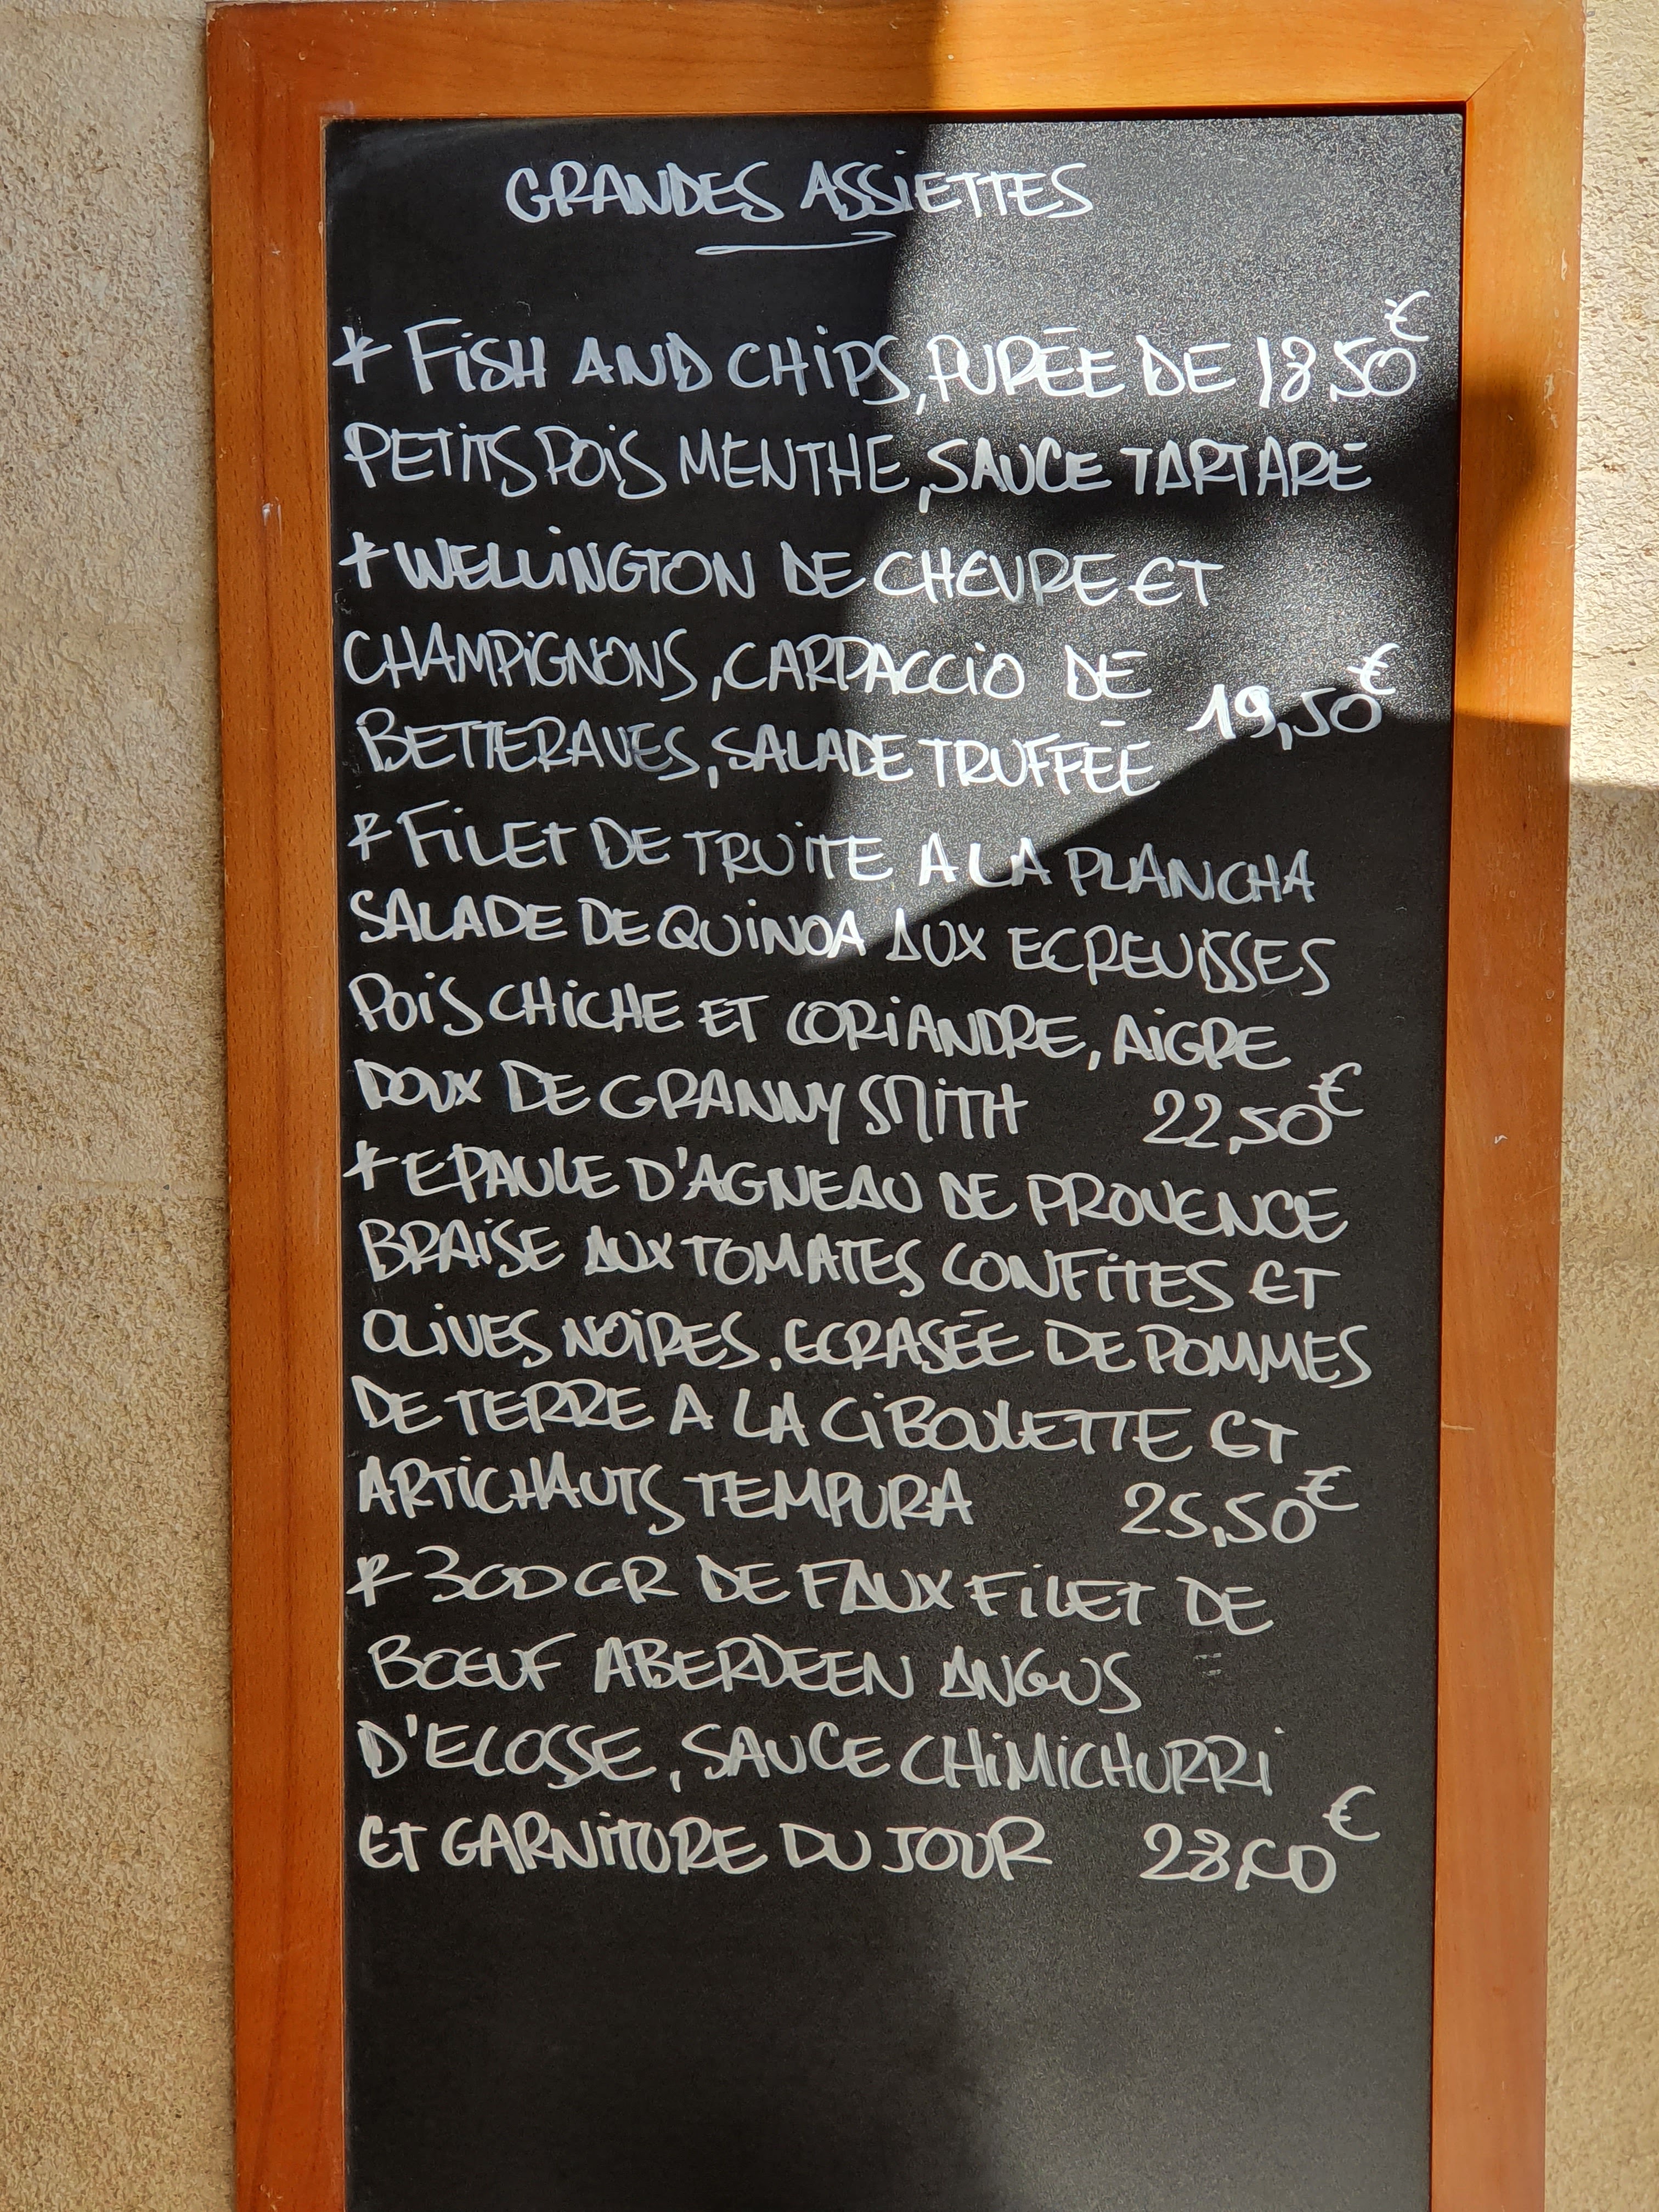 GRANDES ASSIETTES
* FISH AND CHIPS, PURÉE DE 18,50€
PETITS POIS MENTHE, SAUCE TARTARE
* WELLINGTON DE CHEVRE ET
CHAMPIGNONS, CARPACCIO DE
BETTERAVES, SALADE TRUFFÉE 19,50€
* FILET DE TRUITE A LA PLANCHA
SALADE DE QUINOA AUX ECREVISSES
POIS CHICHE ET CORIANDRE, AIGRE
DOUX DE GRANNY SMITH 22,50€
* EPAULE D'AGNEAU DE PROVENCE
BRAISE AUX TOMATES CONFITES ET
OLIVES NOIRES, ECRASÉE DE POMMES
DE TERRE A LA CIBOULETTE ET
ARTICHAUTS TEMPURA 25,50€
* 300 GR DE FAUX FILET DE
BŒUF ABERDEEN ANGUS
D'ECOSSE, SAUCE CHIMICHURRI
ET GARNITURE DU JOUR